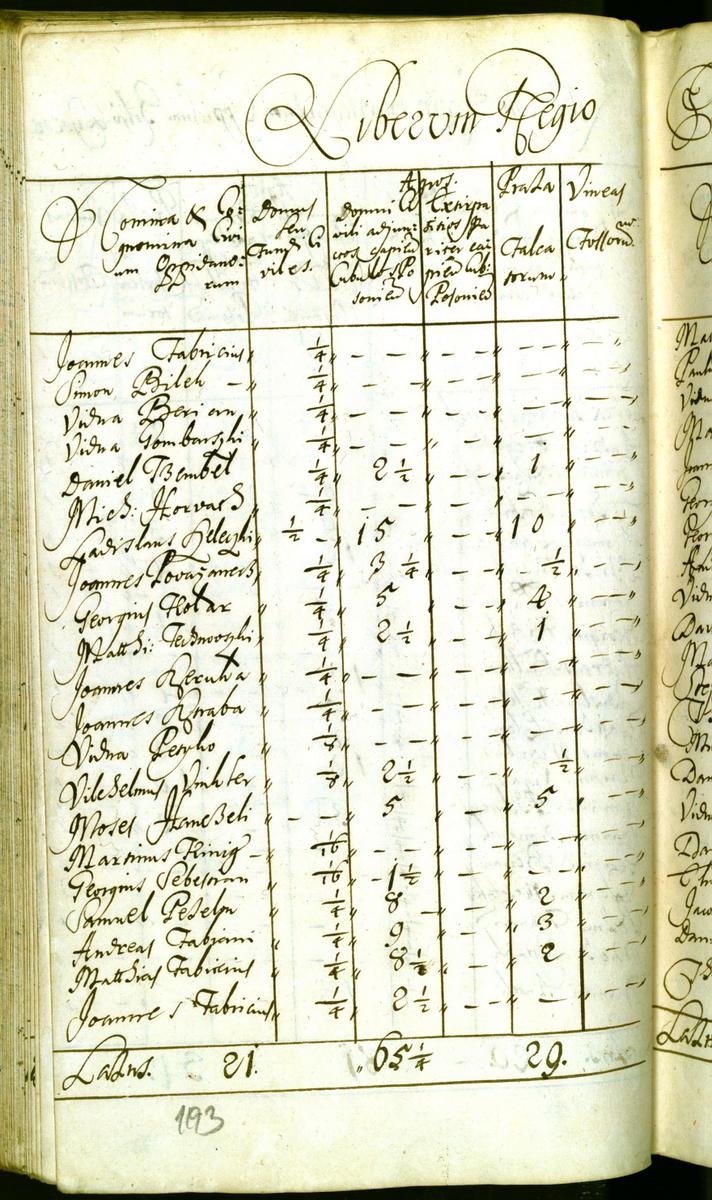 Liberum Regio
Nomina & Co:
gnomina Civi
um Oppidano:
rum
Domus
seu
Fundi Ci
viles.
Agros
Domui Ci
vili adjun:
ctos capien
Cubulos Po
sonien
Extirpa
titios Pa
riter ca
pien Cub:
Posonien
Prata
Falca
torum
Vineas
Fossorum
Joannes Fabricius " 1/4 " - - " - - " - " - -
Simon Bileh - " 1/4 " - - " - - " - " - -
Vidua Berian " 1/4 " - - " - - " - " - -
Vidua Gombarszki " 1/4 " - - " - " - " - -
Daniel Bembel " 1/4 " 2 1/2 " - " 1 " - -
Mich: Horvath " 1/4 " - - " - " - " - -
Ladislaus Keleszki 1/2 - " 15 " - " 10 " - -
Joannes Povazanech " 1/4 " 3 1/4 " - " 1/2 " - -
Georgius Kottar " 1/4 " 5 " - " 4 " - -
Matthi: Ternovszki " 1/4 " 2 1/2 " - " 1 " - -
Joannes Keruha " 1/4 " - - " - " - " - -
Joannes Hraba " 1/4 " - - " - " - " - -
Vidua Peszko " 1/8 " - - " - " - " - -
Vilhelmus Vinkler " 1/8 " 2 1/2 " - " 1/2 " - -
Moses Hanzeli " - - " 5 " - " 5 " - -
Martinus Hinig - " 1/16 " - - " - " - " - -
Georgius Sebestian " 1/16 " 1 1/2 " - " - " - -
Samuel Peselni " 1/4 " 8 " - " 2 " - -
Andreas Fabiani " 1/4 " 9 " - " 3 " - -
Matthias Fabricius " 1/4 " 8 1/2 " - " 2 " - -
Joannes Fabricius " 1/4 " 2 1/2 " - " - " - -
Latus. 21. " 65 1/4 29.
193